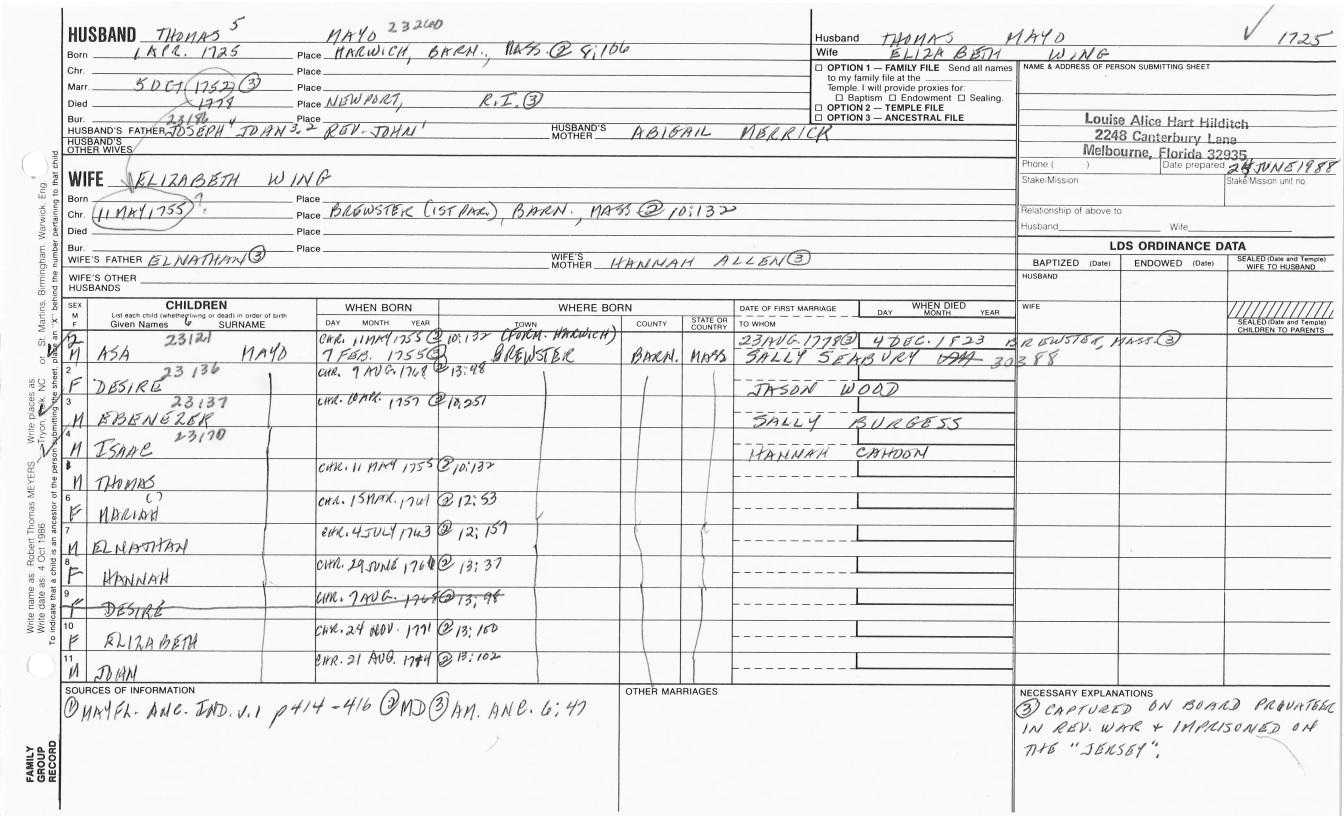 HUSBAND THOMAS 5 MAYO 23260
Born 1 APR. 1725 Place HARWICH, BARN., MASS. ② 8;106
Chr. Place
Marr. 5 OCT 1752 ③ Place
Died 1778 Place NEWPORT, R.I. ③
Bur. Place
23186
HUSBAND'S FATHER JOSEPH 4 JOHN 3, 2 REV. JOHN 1 HUSBAND'S MOTHER ABIGAIL MERRICK
HUSBAND'S OTHER WIVES
Husband THOMAS MAYO 1725
Wife ELIZABETH WING
☐ OPTION 1 — FAMILY FILE Send all names
to my family file at the
Temple. I will provide proxies for:
☐ Baptism ☐ Endowment ☐ Sealing.
☐ OPTION 2 — TEMPLE FILE
☐ OPTION 3 — ANCESTRAL FILE
NAME & ADDRESS OF PERSON SUBMITTING SHEET
Louise Alice Hart Hilditch
2248 Canterbury Lane
Melbourne, Florida 32935
Phone ( ) Date prepared 24 JUNE 1988
Stake/Mission Stake/Mission unit no.
Relationship of above to
Husband Wife
WIFE ELIZABETH WING
Born Place
Chr. 11 MAY 1755 ? Place BREWSTER (1ST PAR.), BARN., MASS ② 10:132
Died Place
Bur. Place
WIFE'S FATHER ELNATHAN ③ WIFE'S MOTHER HANNAH ALLEN ③
WIFE'S OTHER HUSBANDS
LDS ORDINANCE DATA
BAPTIZED (Date) ENDOWED (Date) SEALED (Date and Temple) WIFE TO HUSBAND
HUSBAND
WIFE
SEALED (Date and Temple) CHILDREN TO PARENTS
SEX M F
CHILDREN
List each child (whether living or dead) in order of birth
Given Names 6 SURNAME
WHEN BORN
DAY MONTH YEAR
WHERE BORN
TOWN COUNTY STATE OR COUNTRY
DATE OF FIRST MARRIAGE
TO WHOM
WHEN DIED
DAY MONTH YEAR
23121 CHR. 11 MAY 1755 ② 10:132 (FORM. HARWICH) 23 AUG. 1778 ③ 4 DEC. 1823 BREWSTER, MASS. ③
M ASA MAYO 7 FEB. 1755 ③ BREWSTER BARN. MASS SALLY SEABURY 30388
2 23136 CHR. 9 AUG. 1768 ② 13:98
F DESIRE JASON WOOD
3 23137 CHR. 10 APR. 1757 ② 10;251
M EBENEZER SALLY BURGESS
4 23170
M ISAAC HANNAH CAHOON
CHR. 11 MAY 1755 ② 10:132
M THOMAS
6 (?) CHR. 15 MAR. 1761 ② 12:53
F MARIAH
7 CHR. 4 JULY 1763 ② 12; 157
M ELNATHAN
8 CHR. 29 JUNE 1766 ② 13; 37
F HANNAH
9 CHR. 7 AUG. 1768 ② 13; 98
F DESIRE
10 CHR. 24 NOV. 1771 ② 13; 100
F ELIZABETH
11 CHR. 21 AUG. 1774 ② 13:102
M JOHN
SOURCES OF INFORMATION
① MAYFL. ANC. IND. V. 1 p 414-416 ② MD ③ AM. ANC. 6; 47
OTHER MARRIAGES
NECESSARY EXPLANATIONS
③ CAPTURED ON BOARD PRIVATEER
IN REV. WAR & IMPRISONED ON
THE "JERSEY".
FAMILY GROUP RECORD
Write name as: Robert Thomas MEYERS Write places as: Tryon, Polk, NC or St. Martins, Birmingham, Warwick, Eng.
Write date as: 4 Oct 1986
To indicate that a child is an ancestor of the person submitting the sheet, place an "X" behind the number pertaining to that child